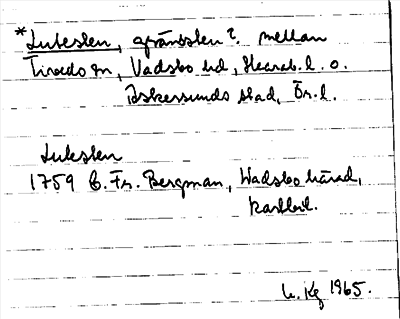 *Lutesten, gränssten?. mellan
Tived sn, Vadsbo hd, Skarab. l. o.
Askersunds stad, Ör. l.
Lutesten
1759 C. Fr. Bergman, Wadsbo härad,
kartbil.
1965.